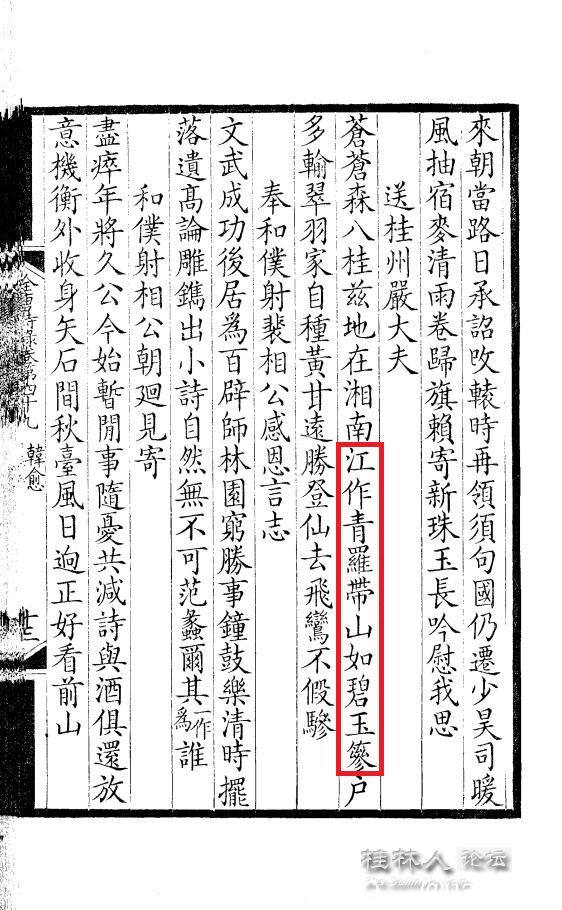 來朝當路日承詔改轅時再領須句國仍遷少昊司暖
風抽宿麥清雨卷歸旗賴寄新珠玉長吟慰我思
送桂州嚴大夫
蒼蒼森八桂兹地在湘南江作青羅帶山如碧玉篸户
多輸翠羽家自種黃甘遠勝登仙去飛鸞不假驂
奉和僕射裴相公感恩言志
文武成功後居爲百辟師林園窮勝事鐘鼓樂清時擺
落遺高論雕鐫出小詩自然無不可范蠡爾其一作爲誰
和僕射相公朝迴見寄
盡瘁年將久公今始暫閒事隨憂共減詩與酒俱還放
意機衡外收身矢石間秋臺風日迥正好看前山
韓愈
桂林人论坛